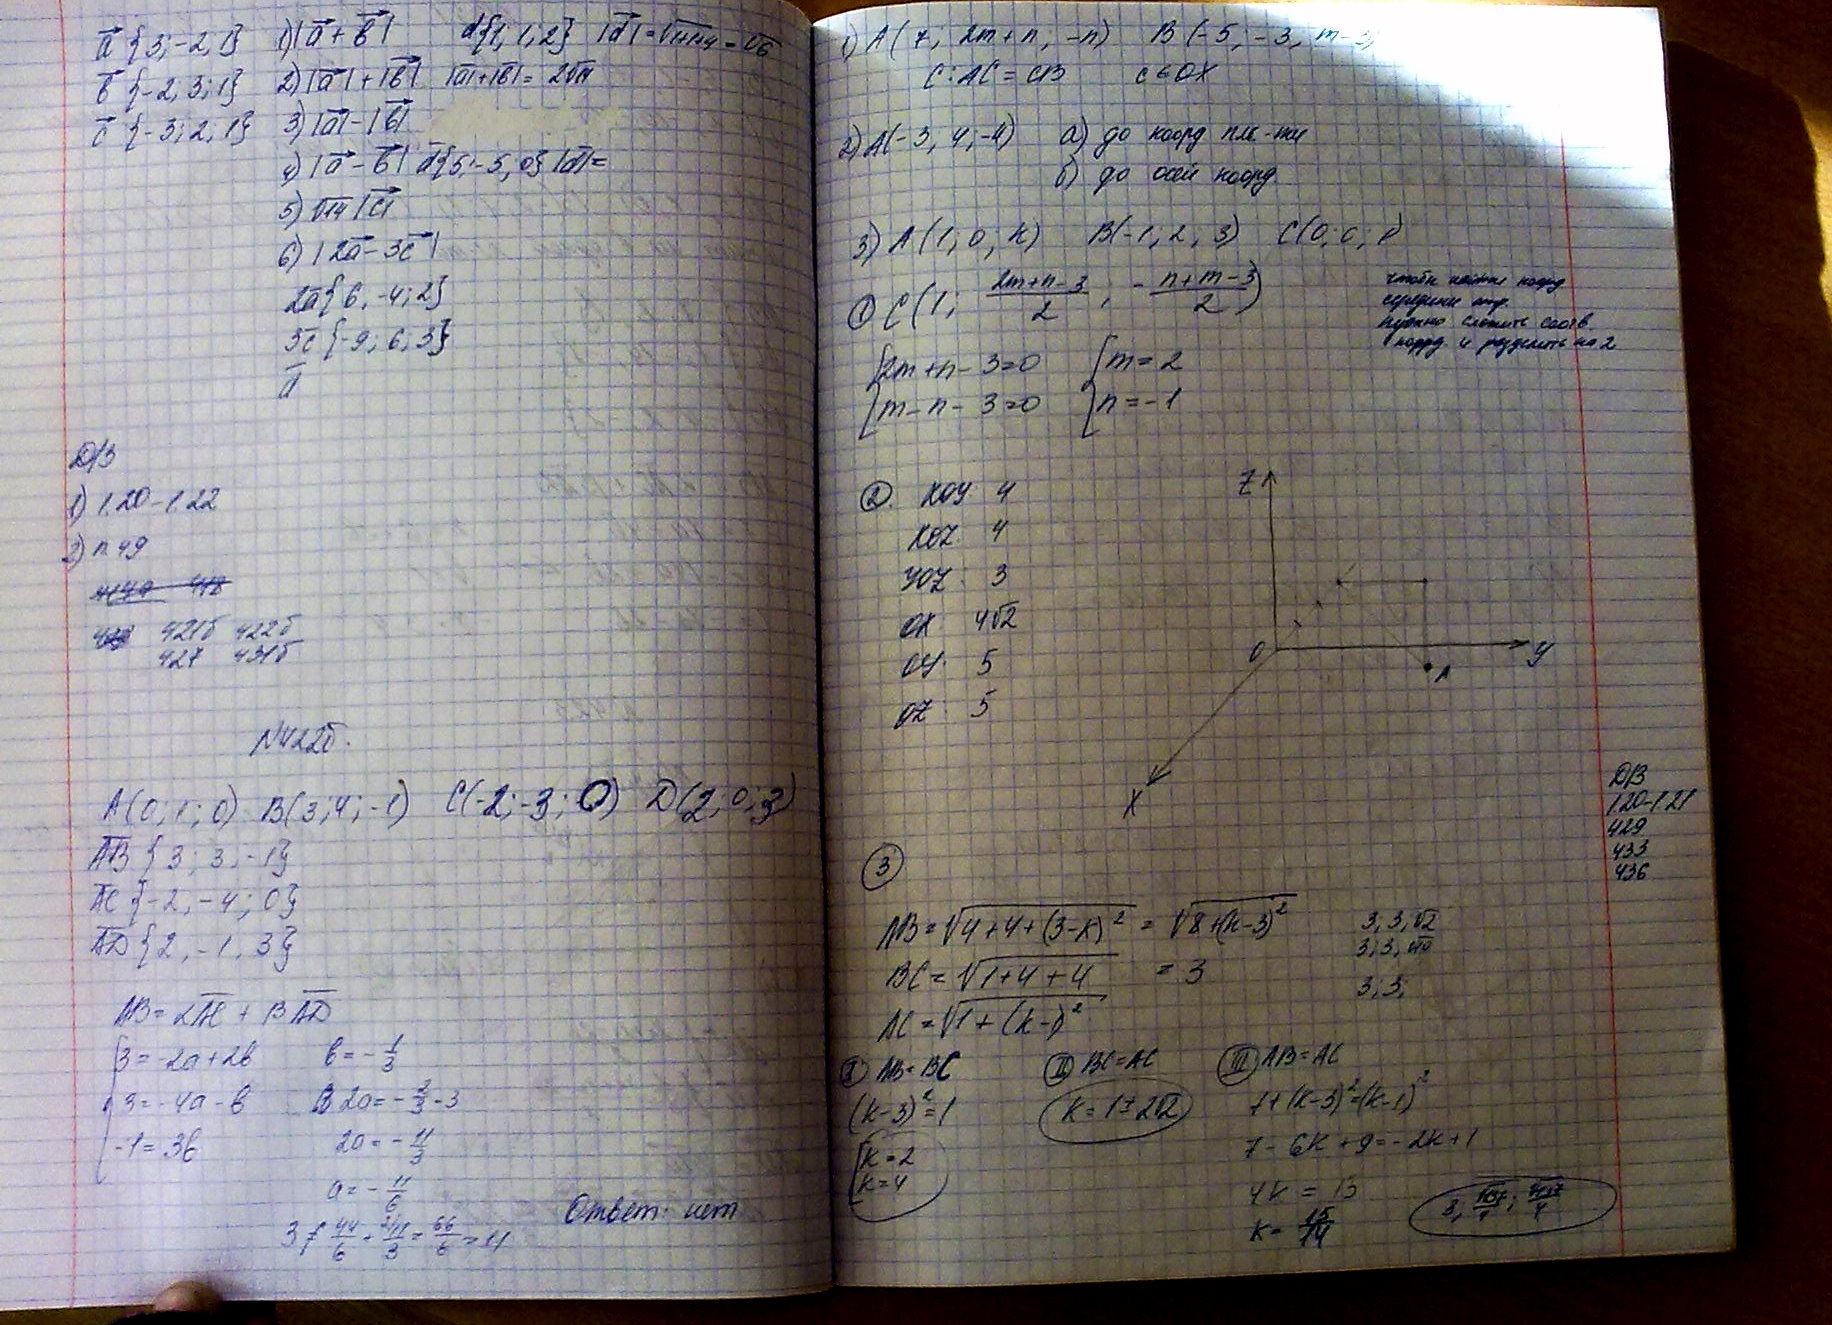 a {3; -2; 1} 1) |a + b| d{1; 1; 2} |d| = √1+1+4 = √6
b {-2; 3; 1} 2) |a| + |b| |a|+|b| = 2√14
c {-3; 2; 1} 3) |a| - |b|
4) |a - b| d{5; -5; 0} |d| =
5) √14 |c|
6) |2a - 3c|
2a {6; -4; 2}
3c {-9; 6; 3}
d
Д/З
1) 1.20-1.22
2) п.49
421б 422б
427 431б
№422б.
A(0; 1; 0) B(3; 4; -1) C(-2; -3; 0) D(2; 0; 3)
AB {3; 3; -1}
AC {-2; -4; 0}
AD {2; -1; 3}
AB = αAC + βAD
3 = -2a + 2b b = -1/3
3 = -4a - b 2a = -2/3 - 3
-1 = 3b 2a = -11/3
a = -11/6
Ответ: нет
1) A(7; 2m+n; -n) B(-5; -3; m-3)
C: AC = CB C∈OX
2) A(-3; 4; -4) а) до коорд пло-ти
б) до осей коорд.
3) A(1; 0; k) B(-1; 2; 3) C(0; 0; 1)
① C(1; (2m+n-3)/2; (-n+m-3)/2)
чтобы найти коорд
середины отр.
нужно сложить соотв.
коорд и разделить на 2
2m+n-3=0 m=2
m-n-3=0 n=-1
② XOY 4
XOZ 4
YOZ: 3
OX: 4√2
OY: 5
OZ: 5
Z
O
Y
A
X
Д/З
1.20-1.21
429
433
436
③
AB = √4+4+(3-k)² = √8+(k-3)²
BC = √1+4+4 = 3
AC = √1+(k-1)²
3; 3; √2
3; 3; √10
3; 3;
I AB=BC II BC=AC III AB=AC
(k-3)²=1 k=1±2√2 7+(k-3)²=(k-1)²
k=2 7-6k+9=-2k+1
k=4 4k = 15